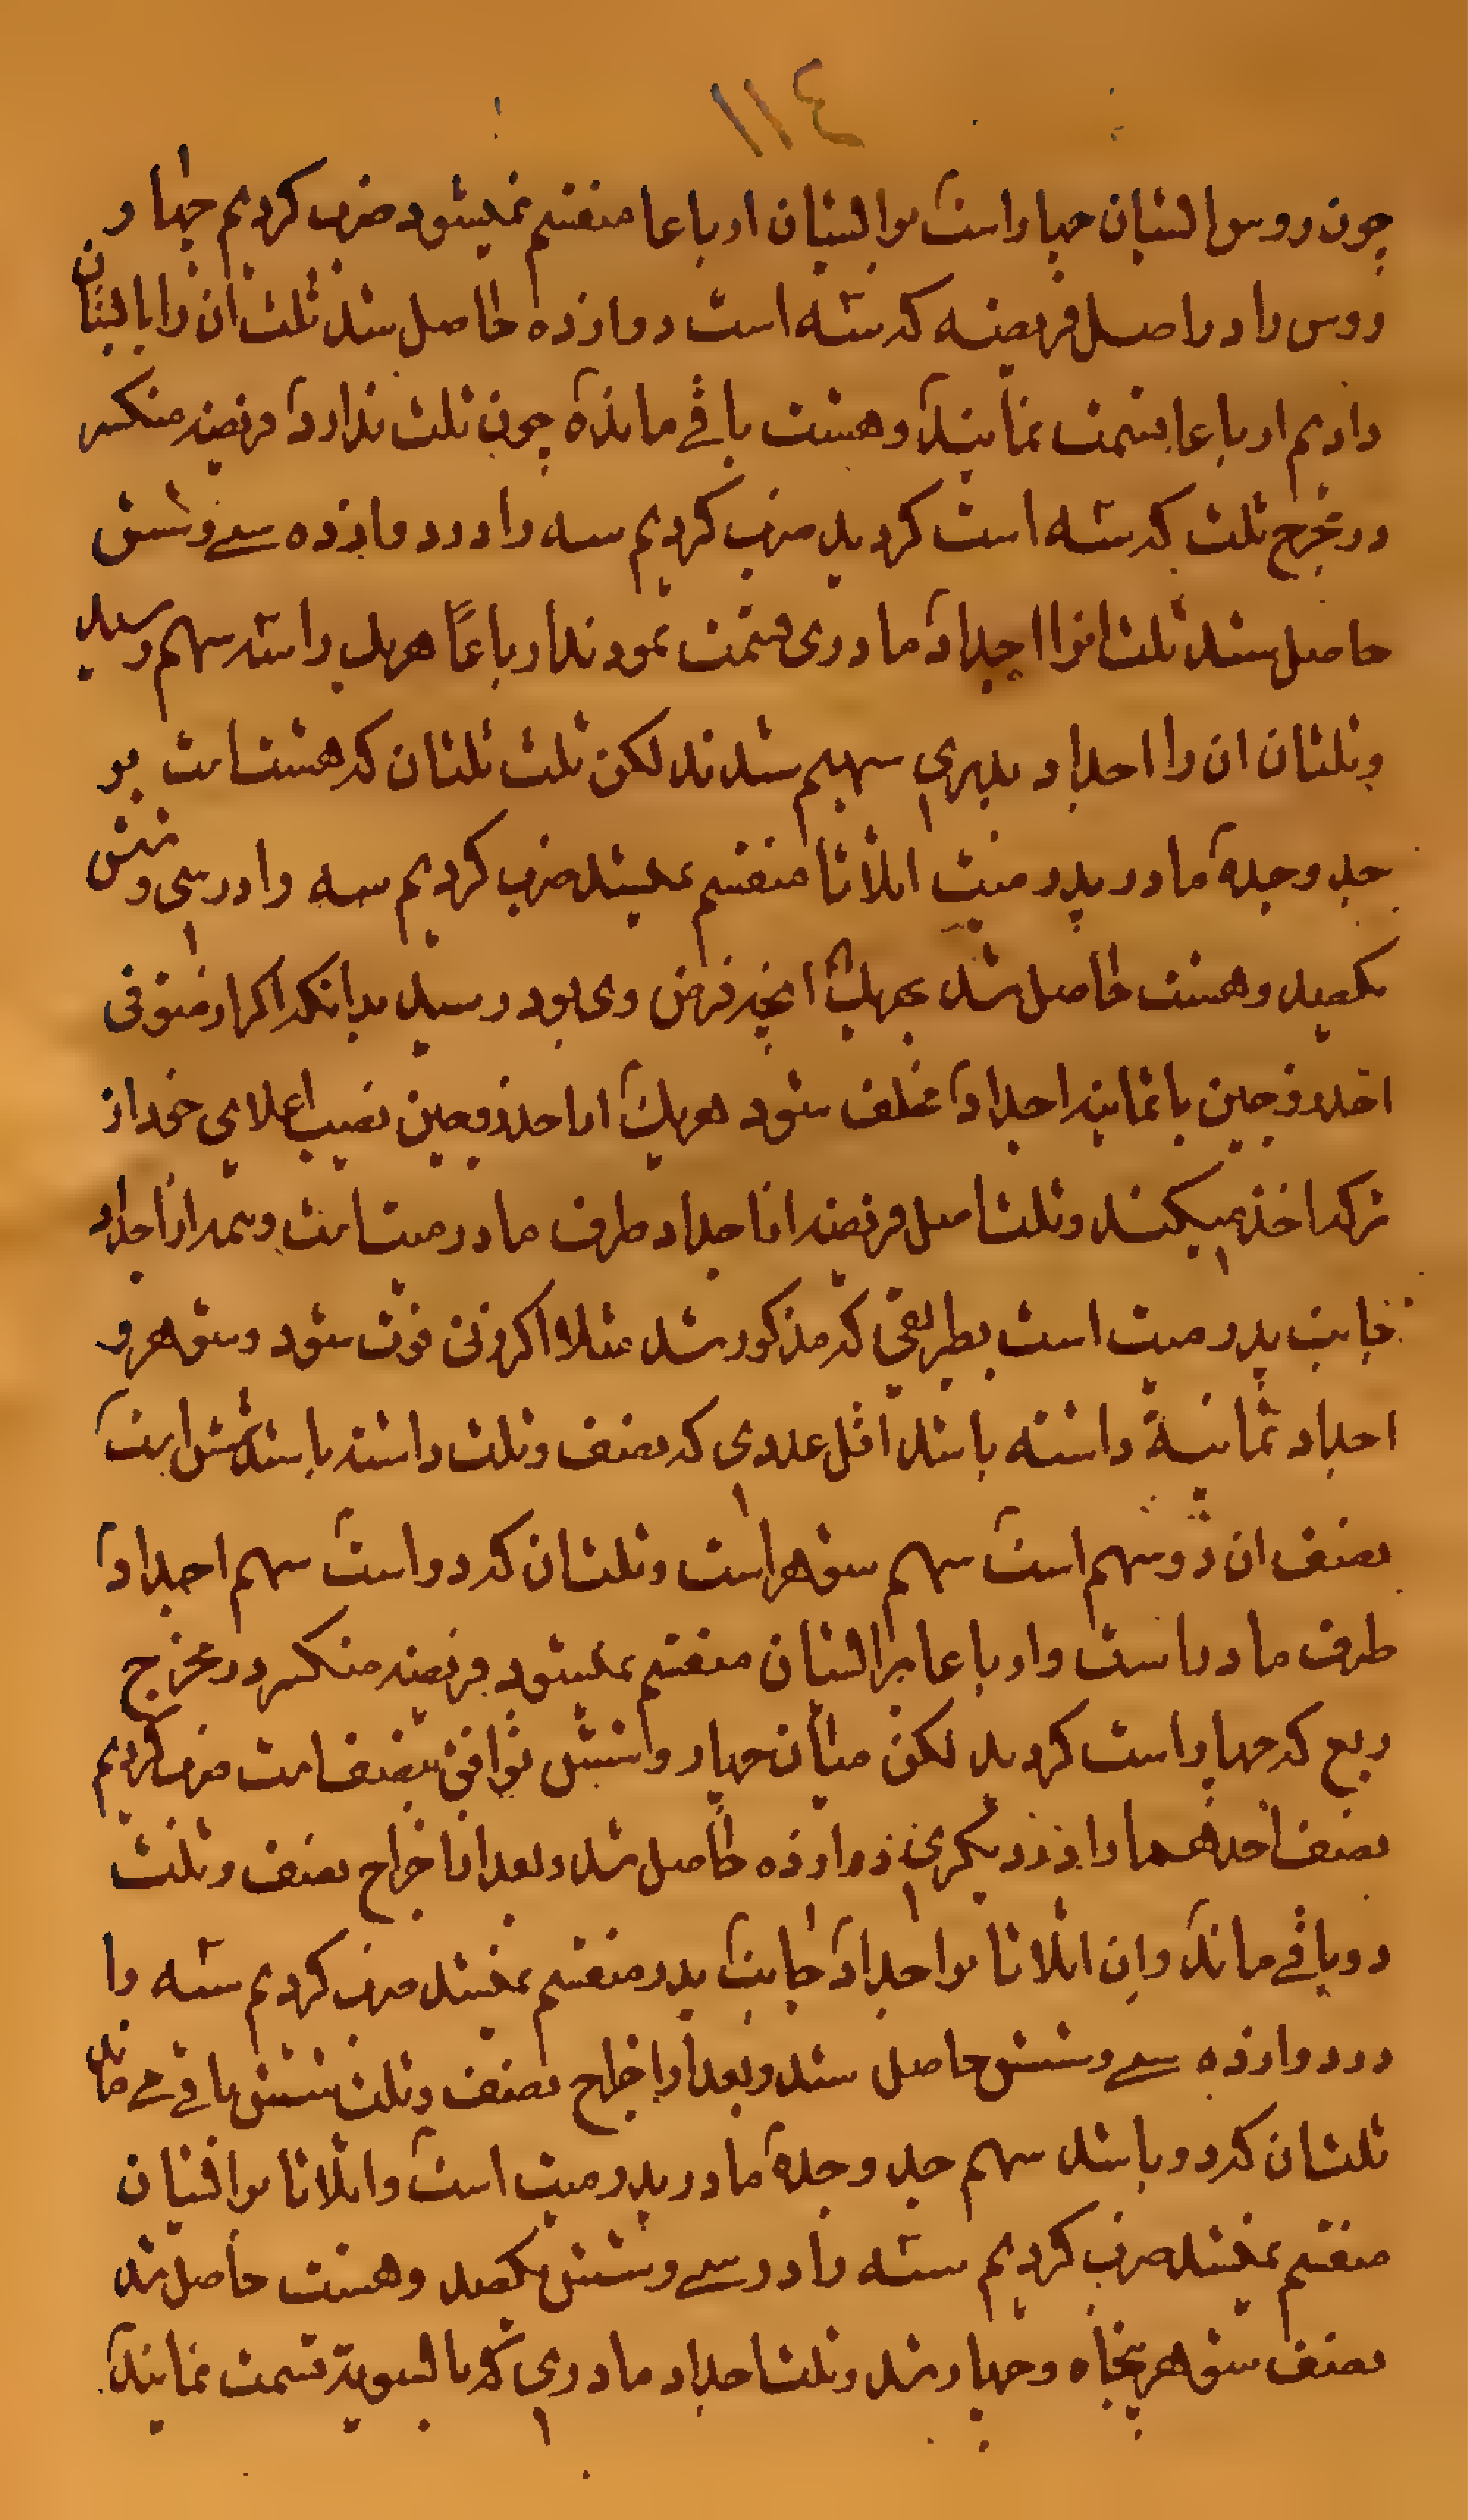 ١١٤
چون روس ایشان چهار است برایشان ارباعا منقسم نمیشود ضرب کردیم چهار
روس را در اصل فریضه که سه است دوازده حاصل شد ثلث ان را بایشان
دادیم ارباعا قسمت نمایند و هشت باقی مانده چون ثلث ندارد فریضه منکسر
در مخرج ثلث که سه است کردید ضرب کردیم سه را در دوازده سی و شش
حاصل شد ثلث انرا اجداد مادری قسمت نمودند ارباعًا هریک را سه سهم رسید
و ثلثان ان را اجداد پدری سهیم شدند لکن ثلث ثلثان که هشت است بر
جد و جدهٔ مادر پدر میت اثلاثا منقسم نمیشد ضرب کردیم سه را در سی و شش
یکصد و هشت حاصل شد بهریک انچه فرض وی بود رسید بدانکه اکر از متوفی
احد زوجین با ثمانیه اجداد مخلف شود هریک از احد زوجین نصیب اعلای خود از
ترکه اخذ میکند و ثلث اصل فریضه از اجداد طرف مادر میت است و تتمه از اجداد
جانب پدر میت است بطریقی که مذکور شد مثلا اکر زنی فوت شود و شوهر و
اجداد ثمانیة داشته باشد اقل عددی که نصف و ثلث داشته باشد شش است
نصف ان دو سهم است سهم شوهر است و ثلث ان که دو است سهم اجداد
طرف مادر است و ارباعا بر ایشان منقسم نمیشود فریضه منکسر در مخرج
ربع که چهار است کردید لکن میان چهار و شش توافق بنصف است ضرب کردیم
نصف احدهما را در دیکری دوازده حاصل شد و بعد از اخراج نصف و ثلث
دو باقی ماند و ان اثلاثا بر اجداد جانب پدر منقسم نمیشد ضرب کردیم سه را
در دوازده سی و شش حاصل شد و بعد از اخراج نصف و ثلث شش باقی می ماند
ثلث ان که دو باشد سهم جد و جدهٔ مادر پدر میت است و اثلاثا بر ایشان
منقسم نمیشد ضرب کردیم سه را در سی و شش یکصد و هشت حاصل شد
نصف شوهر پنجاه و چهار شد و ثلث اجداد مادری که بالسویه قسمت نمایند